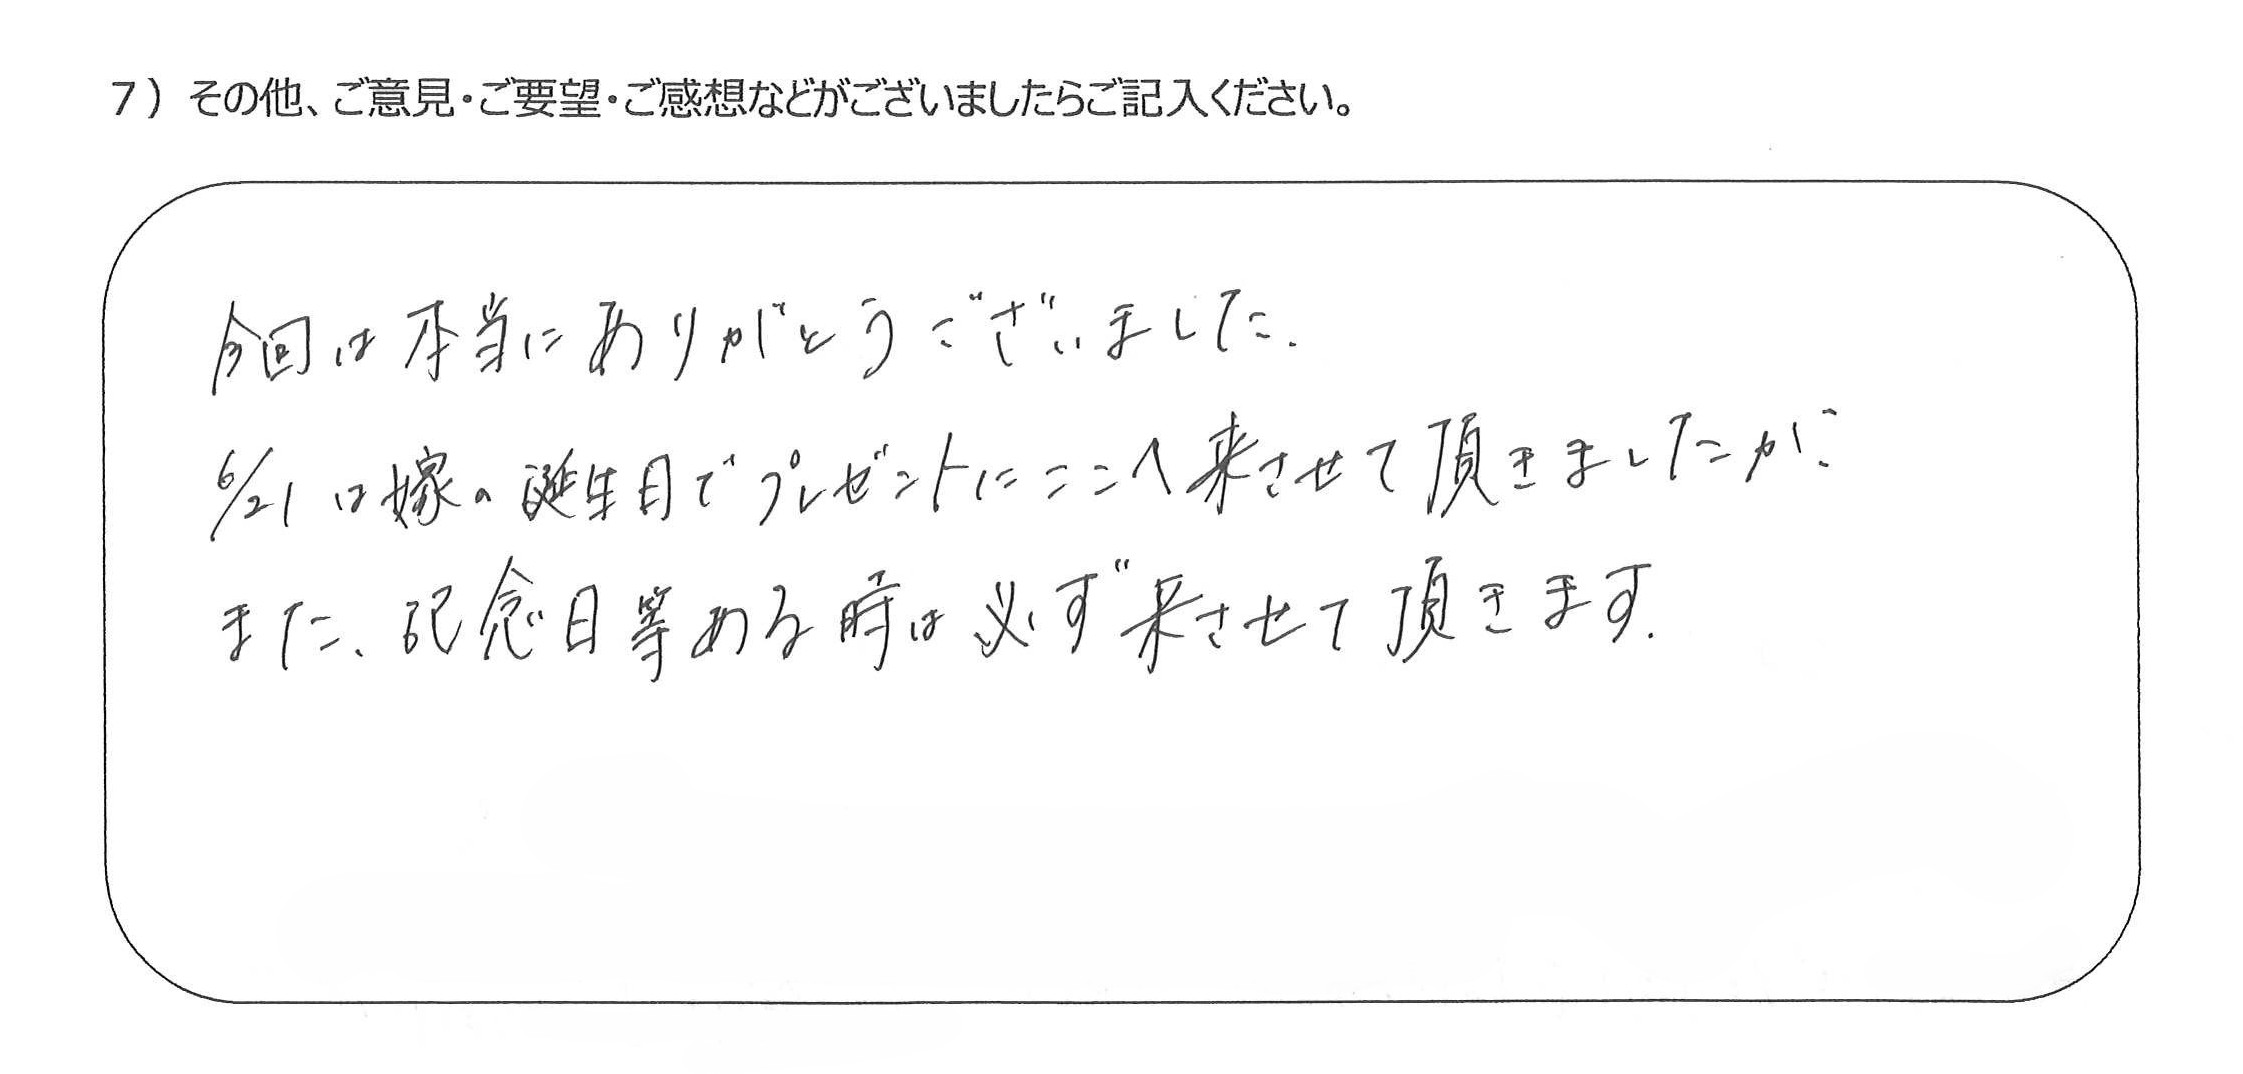 7）その他、ご意見・ご要望・ご感想などがございましたらご記入ください。
今回は本当にありがとうございました.
6/21は嫁の誕生日でプレゼントにここへ来させて頂きましたが、
また、記念日等ある時は必ず来させて頂きます.